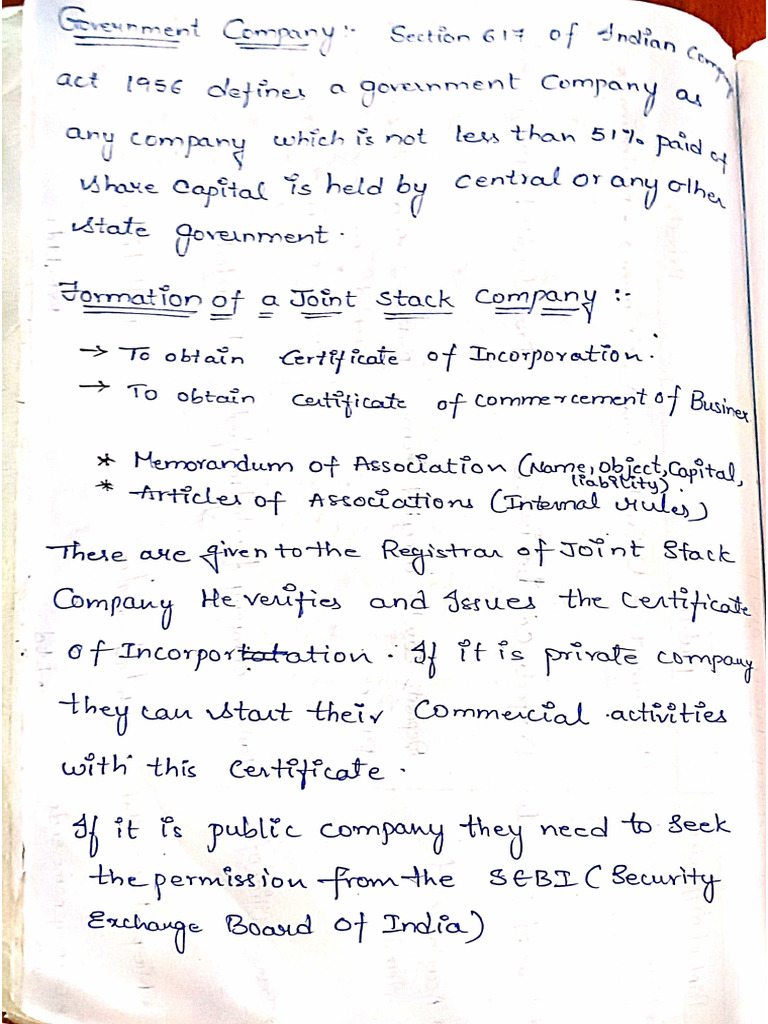 Government Company :- Section 617 of Indian Company
act 1956 defines a government Company as
any company which is not less than 51% paid of
share Capital is held by central or any other
state government.
Formation of a Joint Stack Company :-
→ To obtain Certificate of Incorporation.
→ To obtain certificate of commercement of Business
* Memorandum of Association (Name, object, Capital,
liability).
* Articles of Associations (Internal rules)
These are given to the Registrar of Joint Stack
Company He verifies and Issues the Certificate
of Incorportatation. If it is private company
they can start their Commercial activities
with this Certificate.
If it is public company they need to seek
the permission from the SEBI (Security
Exchange Board of India)